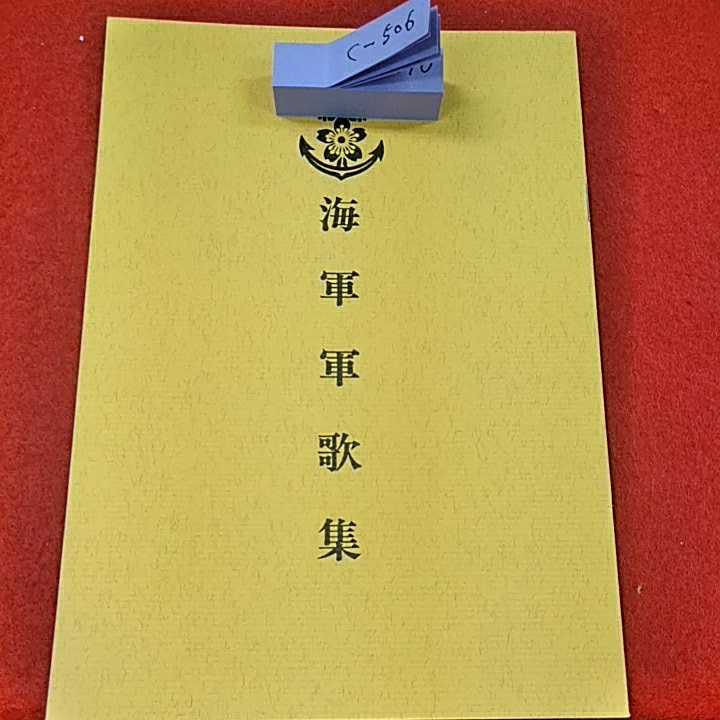 C-506
海軍軍歌集